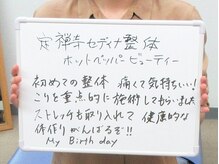 定禅寺セディナ整体
ホットペッパービューティー
初めての整体 痛くて気持ちいい!
こりを重点的に施術してもらいました
ストレッチも取り入れて 健康的な
体作りがんばるぞ!!
My Birthday